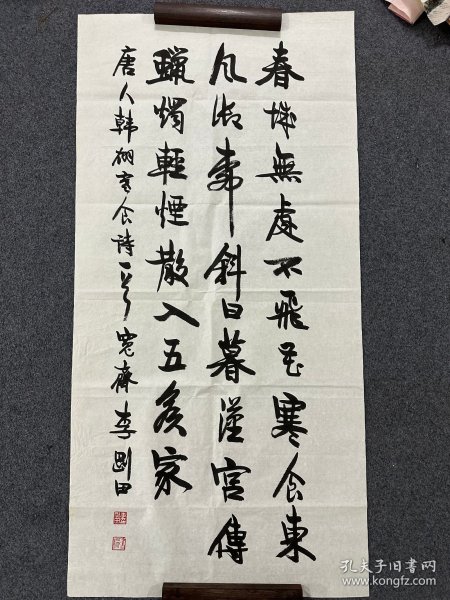 春城無處不飛花寒食東
風御柳斜日暮漢宮傳
蠟燭輕煙散入五侯家
唐人韓翃寒食詩一首 寬齋李剛田
孔夫子旧书网
www.kongfz.com